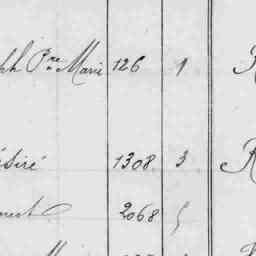 ph Pre Marie 126 1 R
ésiré 1308 3 R
nest 2068 5